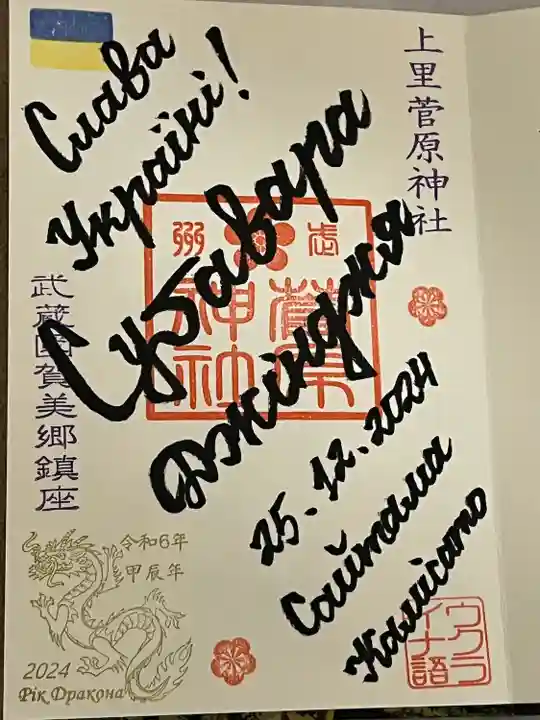 上里菅原神社
Слава
Україні!
Сугавара
Джінджя
25.12.2024
Сайтама
Камісато
武州
菅原
神社
武蔵國賀美郷鎮座
令和6年
甲辰年
2024
Рік Дракона
ウクラ
イナ語